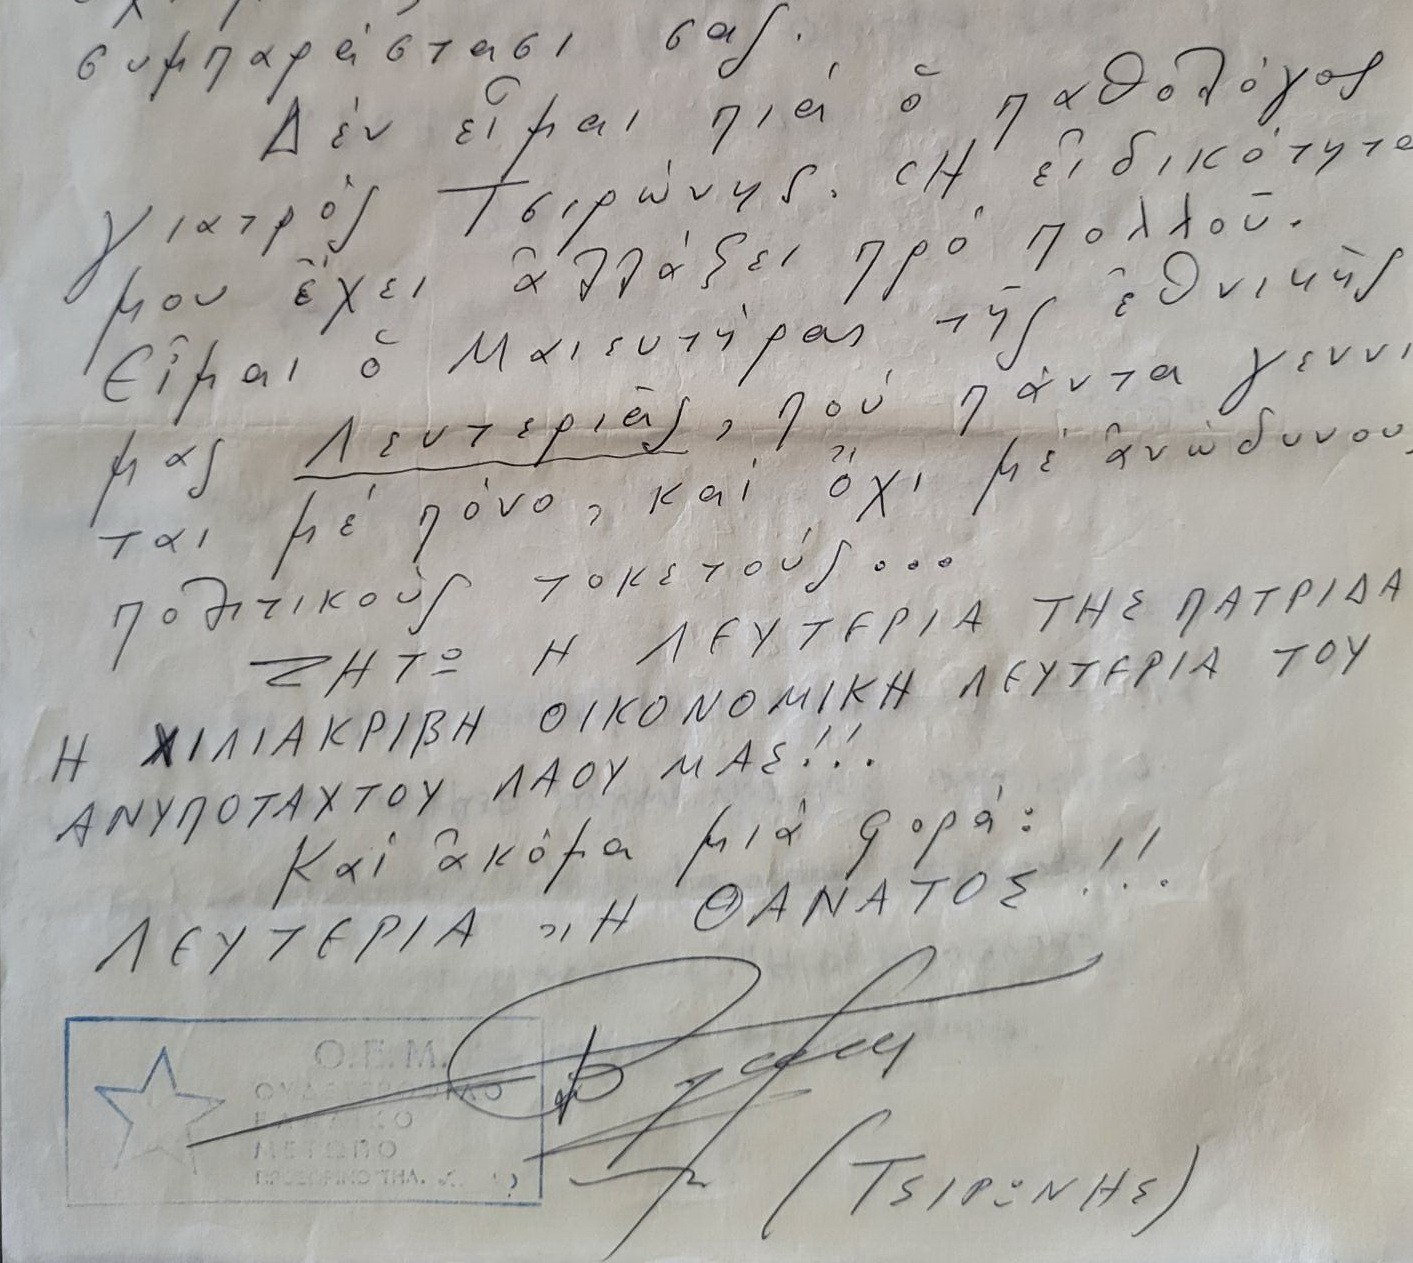 συμπαράστασι σας.
Δέν εἶμαι πιά ὁ παθολόγος
γιατρός Τσιρώνης. Ἡ εἰδικότητα
μου ἔχει ἀλλάξει πρό πολλοῦ.
Εἶμαι ὁ Μαιευτήρας τῆς ἐθνικῆς
μας Λευτεριᾶς, πού πάντα γεννι
ται μέ πόνο, καί ὄχι μέ ἀνώδυνους
πολιτικούς τοκετούς...
ΖΗΤΩ Η ΛΕΥΤΕΡΙΑ ΤΗΣ ΠΑΤΡΙΔΑ
Η ΧΙΛΙΑΚΡΙΒΗ ΟΙΚΟΝΟΜΙΚΗ ΛΕΥΤΕΡΙΑ ΤΟΥ
ΑΝΥΠΟΤΑΧΤΟΥ ΛΑΟΥ ΜΑΣ!!!
Καί ἀκόμα μιά φορά:
ΛΕΥΤΕΡΙΑ Ἤ ΘΑΝΑΤΟΣ!!!
Ο.Ε.Μ.
ΜΕΤΩΠΟ
(ΤΣΙΡΩΝΗΣ)